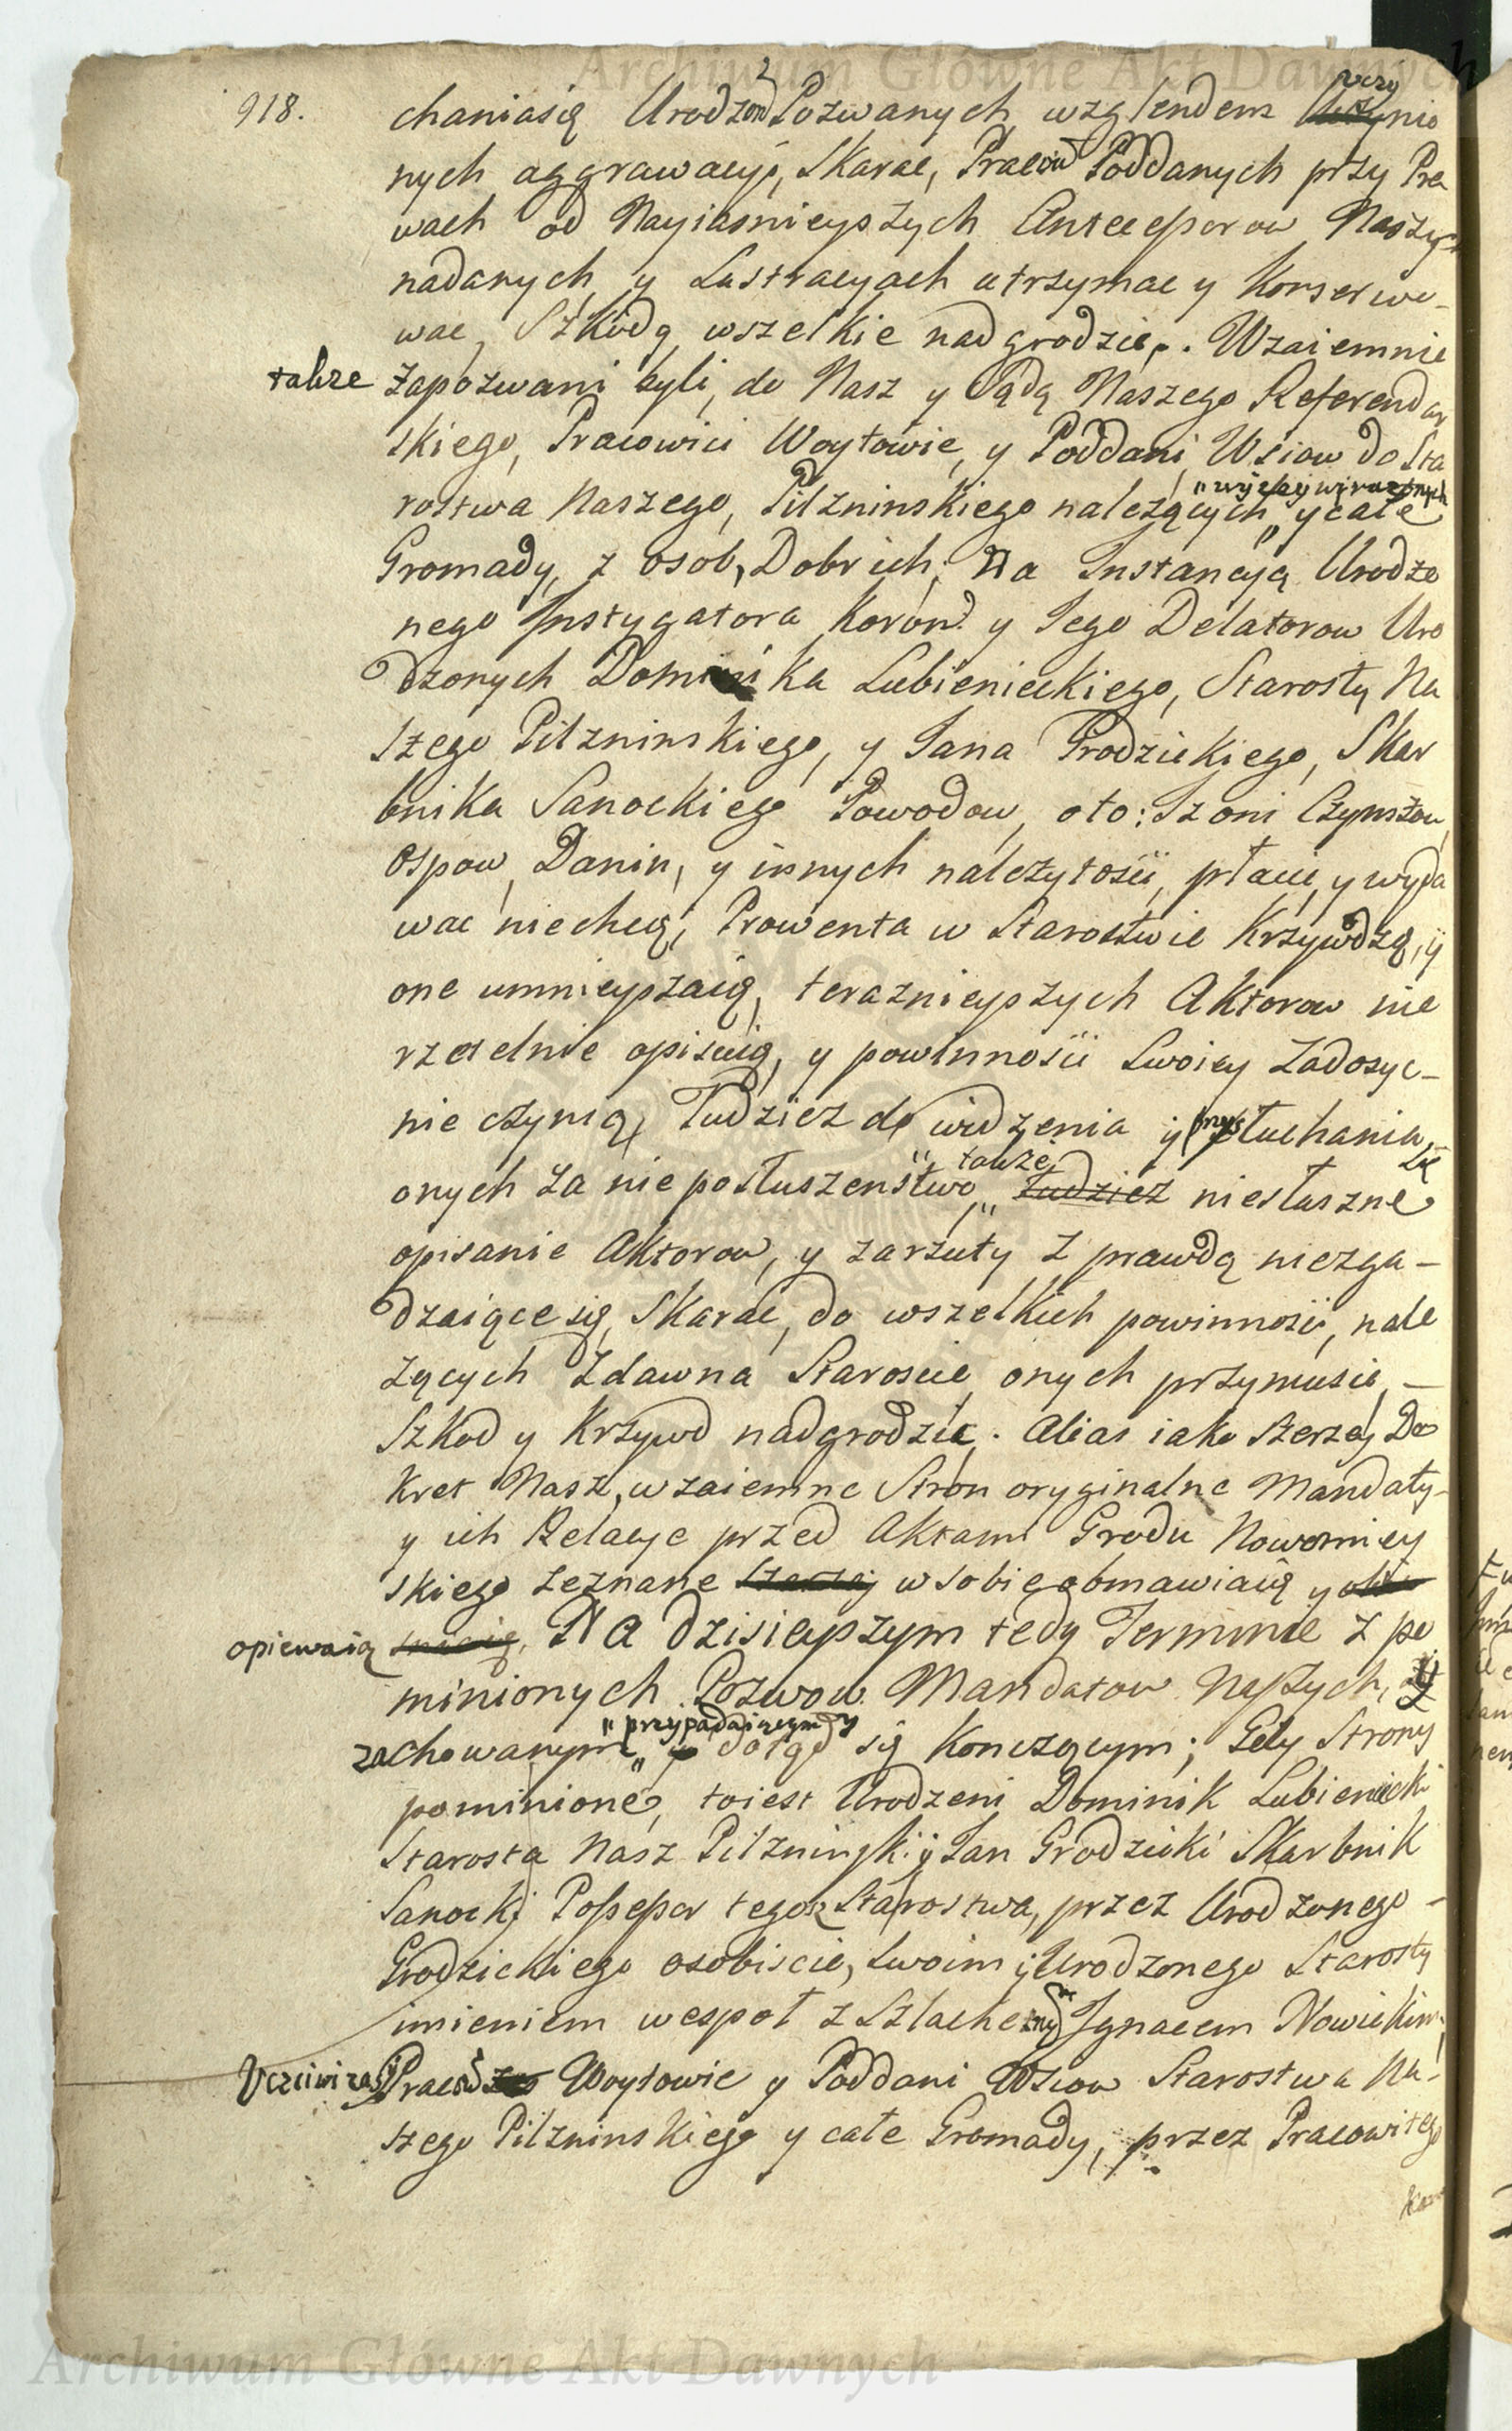 Archiwum Główne Akt Dawnych
918.
chaniasię Urodzon Pozwanych względem uczynio
nych aggrawacyi, Skarac, Pracow Poddanych przy Pra
wach od Nayiasnieyszych Antecessorow Naszych
nadanych y Lustracyach utrzymac y Konserwo-
wac, Szkody wszelkie nadgrodzic. Wzaiemnie
takze zapozwani byli, do Nasz y Sądą Naszego Referendar
skiego, Pracowici Woytowie, y Poddani Wsiow do Sta
"wyżey wyrażonych
rostwa Naszego, Pilzninskiego nalezących „ y całe
Gromady, z osob, Dobr ich; Na Instancyą Urodzo
nego Instygatora Koron y Jego Delatorow Uro
dzonych Dominika Lubienieckiego, Starosty Na
szego Pilzninskiego, y Jana Grodzickiego, Skar
bnika Sanockiego Powodow, oto: Iz oni Czynszow
Ospow, Danin, y innych nalezytosci, płacic, y wyda
wac niechcą, Prowenta w Starostwie Krzywdzą, y
one umnieyszaią, teraznieyszych Aktorow nie
rzetelnie opisuią, y powinnosci Swoiey Zadosyc-
nie czynią, Tudziez do widzenia y przysłuchania
się
onych za nieposłuszenstwo „ takze tudziez niesłuszne
opisanie Aktorow, y zarzuty z prawdą niezga-
dzaiące się, Skarac, do wszelkich powinnosci, nale
zących Zdawna Staroscie onych przymusic, -
Szkod y Krzywd nadgrodzic. Alias iako szerzey De
kret Nasz, wzaiemne Stron oryginalne Mandaty
y ich Relacye przed Aktami Grodu Nowomiey
skiego zeznane szerzey w sobie obmawiaią y
opiewaią Na dzisieyszym tedy Terminie z po
minionych Pozwow Mandatow Naszych, y
"przypadaiącym y
zachowanym „ dotąd się Konczącym; Gdy Strony
pominione, toiest Urodzeni Dominik Lubieniecki
Starosta Nasz Pilzninski y Jan Grodzicki Skarbnik
Sanocki Possessor tegoz Starostwa, przez Urodzonego -
Grodzickiego osobiscie, Swoim y Urodzonego Starosty
imieniem wespoł z Szlachetnym Ignacem Nowickim,
Uczciwi zas y Pracow Woytowie y Poddani Wsiow Starostwa Na-
szego Pilzninskiego y całe Gromady, przez Pracowitego
Archiwum Główne Akt Dawnych